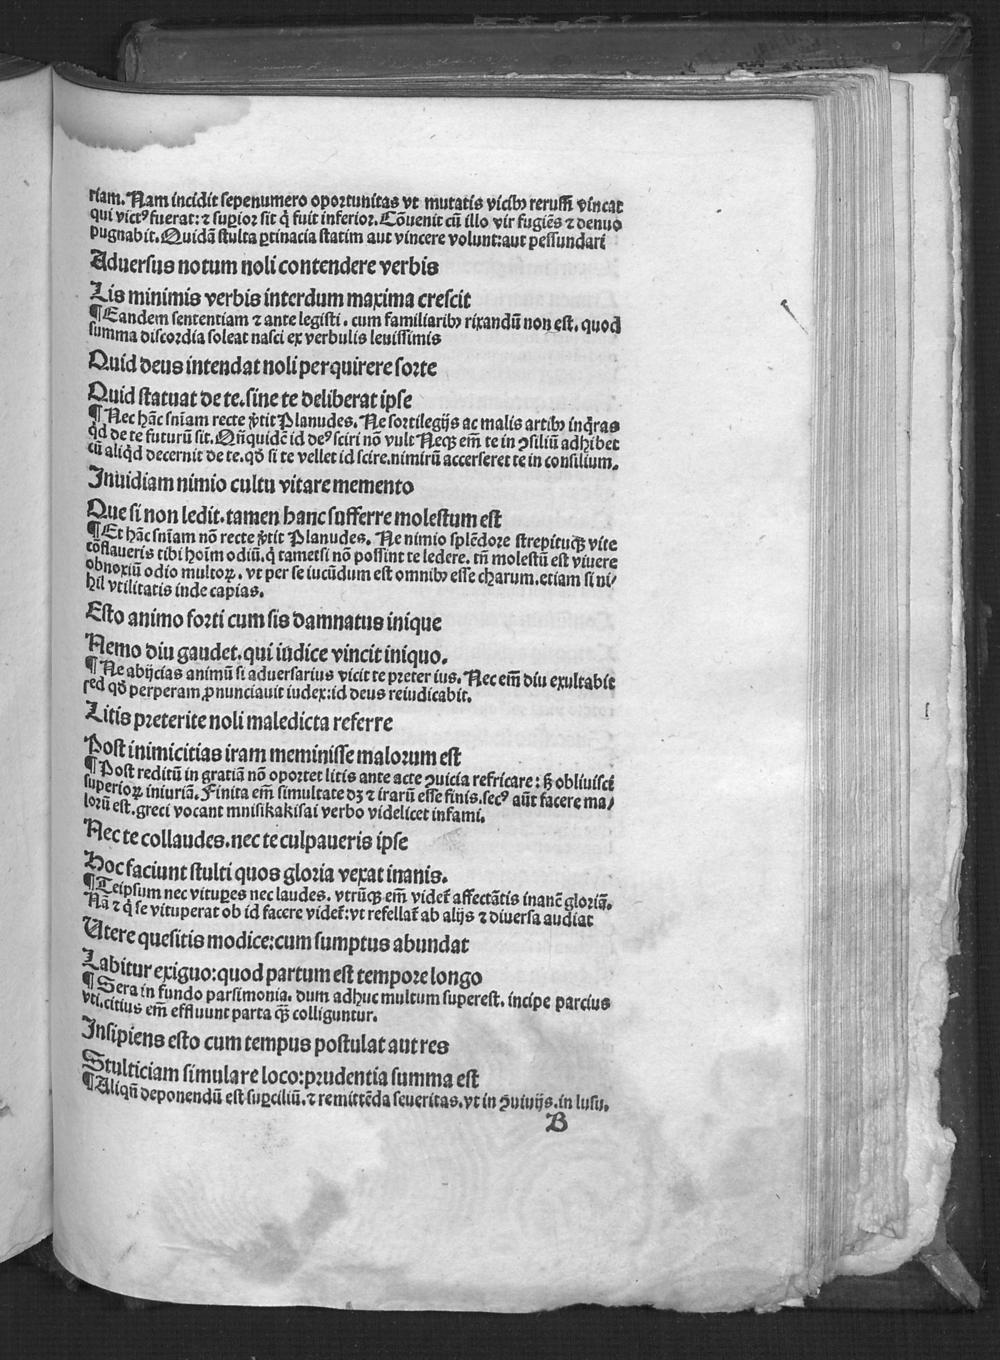 riam. Nam incidit sepenumero oportunitas vt mutatis vicibꝰ rerusſ vincat
qui victꝰ fuerat: ⁊ supior sit q̄ fuit inferior. Cōuenit cū illo vir fugiēs ⁊ denuo
pugnabit. Quidā stulta ꝑtinacia statim aut vincere volunt: aut pessundari
Aduersus notum noli contendere verbis
Lis minimis verbis interdum maxima crescit
¶ Eandem sententiam ⁊ ante legisti. cum familiaribꝰ rixandū non est. quod
summa discordia soleat nasci ex verbulis leuissimis
Quid deus intendat noli perquirere sorte
Quid statuat de te. sine te deliberat ipse
¶ Nec hāc sniam recte v̄tit Planudes. Ne sortilegijs ac malis artibꝰ inq̄ras
qd de te futurū sit. Qn̄quidē id deꝰ sciri nō vult Neqꝫ em̄ te in ꝯsiliū adhibet
cū aliqd decernit de te. qđ si te vellet id scire. nimirū accerseret te in consilium.
Inuidiam nimio cultu vitare memento
Que si non ledit. tamen hanc sufferre molestum est
¶ Et hāc sniam nō recte v̄tit Planudes. Ne nimio splēdore strepituqꝫ vite
cōflaueris tibi hoīm odiū. q̄ tametsi nō possint te ledere. tn̄ molestū est viuere
obnoxiū odio multoꝝ. vt per se iucūdum est omnibꝰ esse charum. etiam si ni/
hil vtilitatis inde capias.
Esto animo forti cum sis damnatus inique
Nemo diu gaudet. qui iudice vincit iniquo.
¶ Ne abijcias animū si aduersarius vicit te preter ius. Nec em̄ diu exultabit
sed qđ perperam ꝓnunciauit iudex: id deus reiudicabit.
Litis preterite noli maledicta referre
Post inimicitias iram meminisse malorum est
¶ Post reditū in gratiā nō oportet litis ante acte ꝯuicia refricare: ß obliuisci
superioꝝ iniuriā. Finita em̄ simultate dꝫ ⁊ irarū esse finis. secꝰ aūt facere ma/
lorū est. greci vocant mnisikakisai verbo videlicet infami.
Nec te collaudes. nec te culpaueris ipse
Hoc faciunt stulti quos gloria vexat inanis.
¶ Teipsum nec vituꝑes nec laudes. vtrūqꝫ em̄ videt᷑ affectātis inanē gloriā.
Nā ⁊ q̄ se vituperat ob id facere videt᷑: vt refellat᷑ ab alijs ⁊ diuersa audiat
Utere quesitis modice: cum sumptus abundat
Labitur exiguo: quod partum est tempore longo
¶ Sera in fundo parsimonia. dum adhuc multum superest. incipe parcius
vti. citius em̄ effluunt parta q̄ꝫ colliguntur.
Insipiens esto cum tempus postulat aut res
Stulticiam simulare loco: prudentia summa est
¶ Aliqn̄ deponendū est suꝑciliū. ⁊ remittēda seueritas. vt in ꝯuiuijs. in lusu.
B